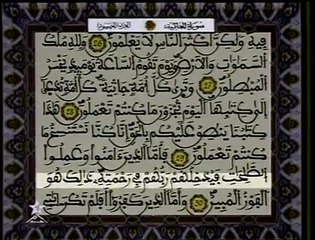 سورة الجاثية
فِيهِ وَلَٰكِنَّ أَكْثَرَ النَّاسِ لَا يَعْلَمُونَ ۝ وَلِلَّهِ مُلْكُ
السَّمَٰوَٰتِ وَالْأَرْضِ وَيَوْمَ تَقُومُ السَّاعَةُ يَوْمَئِذٍ يَخْسَرُ
الْمُبْطِلُونَ ۝ وَتَرَىٰ كُلَّ أُمَّةٍ جَاثِيَةً كُلُّ أُمَّةٍ تُدْعَىٰ
إِلَىٰ كِتَٰبِهَا الْيَوْمَ تُجْزَوْنَ مَا كُنتُمْ تَعْمَلُونَ ۝ هَٰذَا
كِتَٰبُنَا يَنطِقُ عَلَيْكُم بِالْحَقِّ إِنَّا كُنَّا نَسْتَنسِخُ مَا
كُنتُمْ تَعْمَلُونَ ۝ فَأَمَّا الَّذِينَ ءَامَنُوا وَعَمِلُوا
الصَّٰلِحَٰتِ فَيُدْخِلُهُمْ رَبُّهُمْ فِي رَحْمَتِهِ ذَٰلِكَ هُوَ
الْفَوْزُ الْمُبِينُ ۝ وَأَمَّا الَّذِينَ كَفَرُوا أَفَلَمْ تَكُنْ ءَايَٰتِي